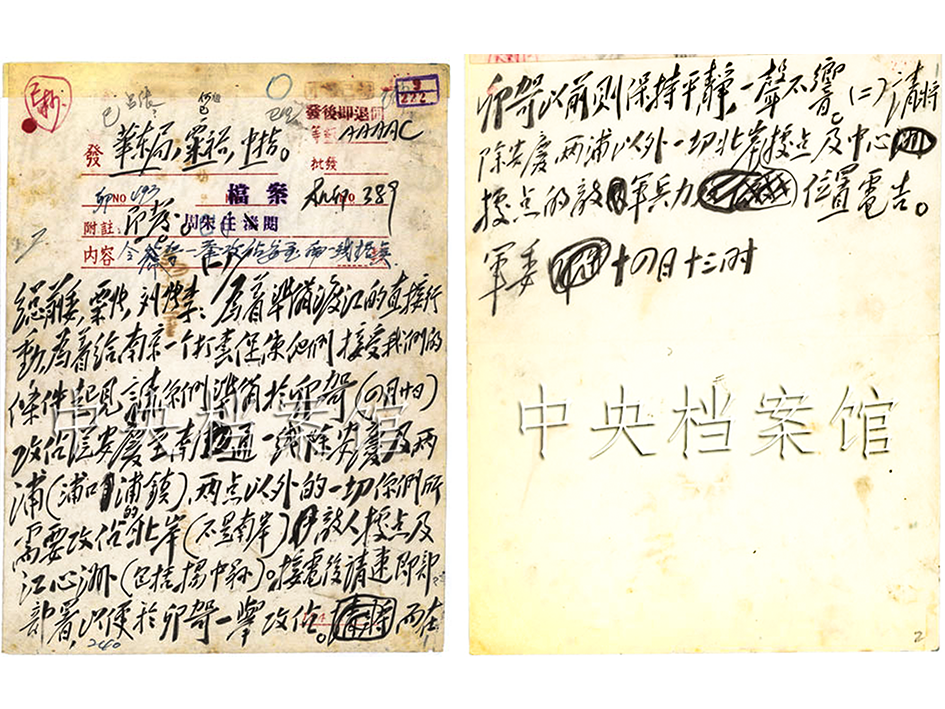 發後即退回
AAAAC
發 華東局，粟裕，中指。
批發
卯NO 493
檔案
NO 389
附註
内容
總前委，粟張，刘張李：為着準備渡江的直接行
動，為着給南京一个打击促使他們接受我們的
條件起見，請你們準備於卯哿（四月廿日）
攻佔安慶至南通一线除安慶及两
浦（浦口浦鎮），两点以外的一切你們所
需要攻佔的北岸（不是南岸）敵人據点及
江心洲（包括揚中縣）。接電後請速即部
部署，以便於卯哿一舉攻佔。而在
240
卯哿以前则保持平静，一聲不響。（二）請將
除安慶，两浦以外一切北岸據点及中心
據点的敵軍兵力位置電告。
軍委
十四日十三时
中央档案馆
中央档案馆
2